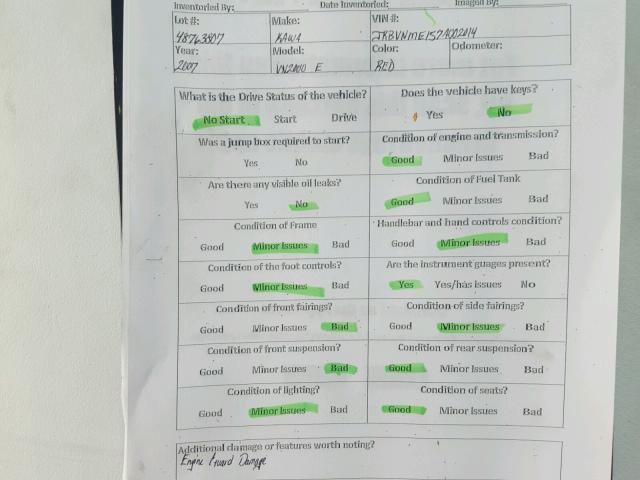 Inventoried By: Date Inventoried: Imaged By:
Lot #: Make: VIN #:
48763807 KAWA JKBVNME157A002814
Year: Model: Color: Odometer:
2007 VN2000 E RED
What is the Drive Status of the vehicle? Does the vehicle have keys?
No Start Start Drive Yes No
Was a jump box required to start? Condition of engine and transmission?
Yes No Good Minor Issues Bad
Are there any visible oil leaks? Condition of Fuel Tank
Yes No Good Minor Issues Bad
Condition of Frame Handlebar and hand controls condition?
Good Minor Issues Bad Good Minor Issues Bad
Condition of the foot controls? Are the instrument guages present?
Good Minor Issues Bad Yes Yes/has issues No
Condition of front fairings? Condition of side fairings?
Good Minor Issues Bad Good Minor Issues Bad
Condition of front suspension? Condition of rear suspension?
Good Minor Issues Bad Good Minor Issues Bad
Condition of lighting? Condition of seats?
Good Minor Issues Bad Good Minor Issues Bad
Additional damage or features worth noting?
Engine Guard Damage